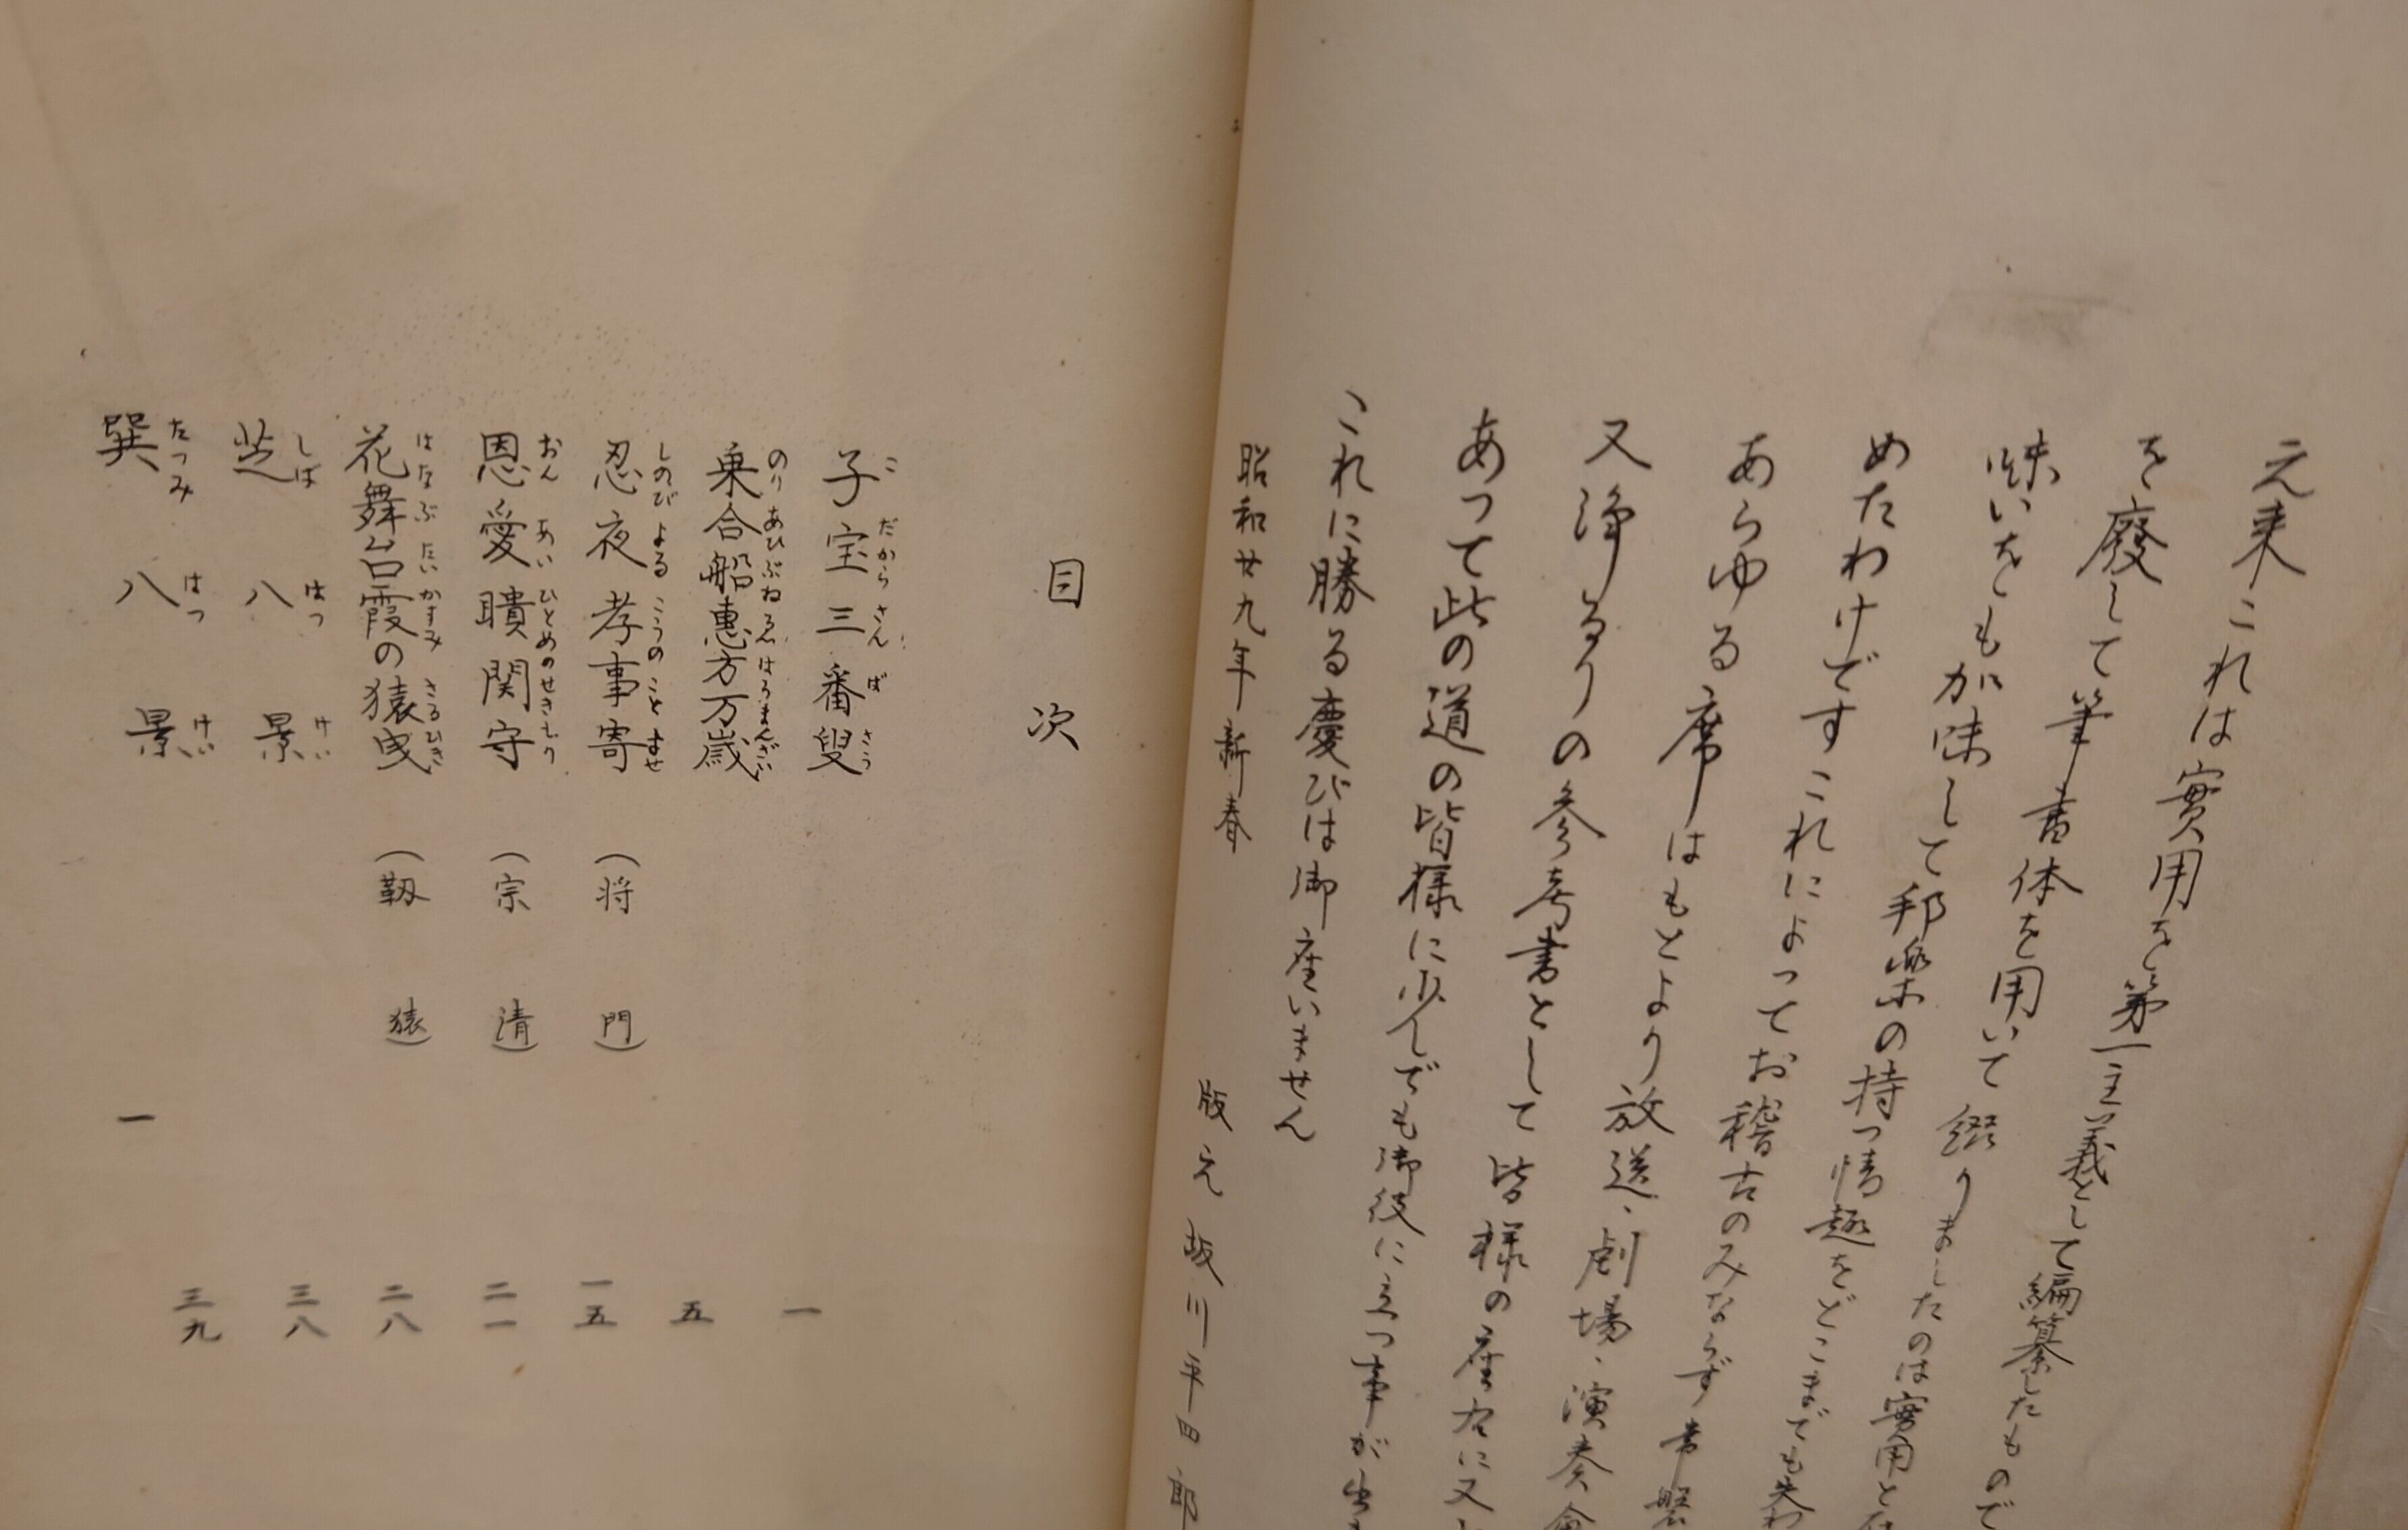 元来これは實用を第一主義として編纂したもので
を廢して筆書体を用いて綴りましたのは實用と
味いをも加味して邦樂の持つ情趣をどこまでも失わ
めたわけですこれによってお稽古のみならず常磐
あらゆる席はもとより放送、劇場、演奏會
又浄るりの参考書として皆様の座右に又
あって此の道の皆様に少しでも御役に立つ事が出
これに勝る慶びは御座いません
昭和廿九年新春 版元 坂川平四郎
目次
子宝三番叟 こ だから さん ば さう 一
乗合船恵方万歳 のりあひぶねゑはうまんざい 五
忍夜孝事寄 しのびよるこうのことよせ (将門) 一五
恩愛瞶関守 おんあいひとめのせきもり (宗清) 二一
花舞台霞の猿曳 はなぶたいかすみさるひき (靱猿) 二八
芝八景 しばはつけい 三八
巽八景 たつみはつけい 三九
一